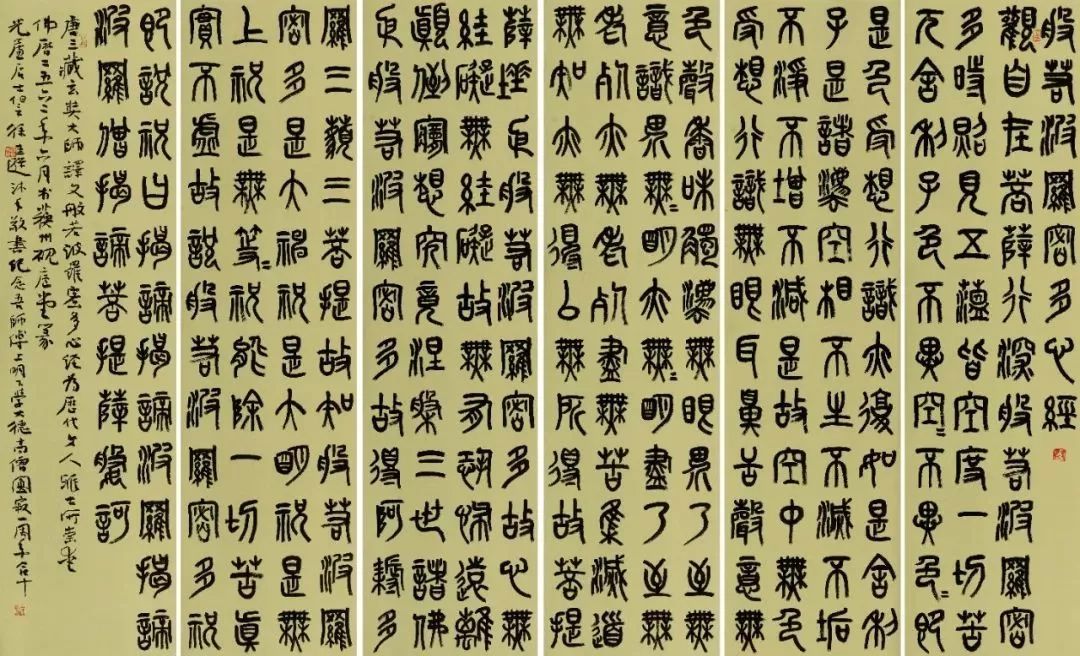 般若波羅密多心經
觀自在菩薩行深般若波羅密
多時照見五蘊皆空度一切苦
厄舍利子色不異空=不異色=即
是色受想行識亦復如是舍利
子是諸法空相不生不滅不垢
不淨不增不減是故空中無色
受想行識無眼耳鼻舌聲意無
色聲香味觸法無眼界乃至無
意識界無=明亦無=明盡乃至無
老死亦無老死盡無苦集滅道
無知亦無得以無所得故菩提
薩埵依般若波羅密多故心無
罣礙無罣礙故無有恐怖遠離
顛倒夢想究竟涅槃三世諸佛
依般若波羅密多故得阿耨多
羅三藐三菩提故知般若波羅
密多是大神祝是大明祝是無
上祝是無等=祝能除一切苦真
實不虛故說般若波羅密多祝
即說祝曰揭諦揭諦波羅揭諦
波羅僧揭諦菩提薩婆訶
唐三藏玄奘大師譯文般若波羅密多心經為歷代文人雅士所崇
佛曆二五六三年六月書蘇州硯廬
光廬居士沐手敬書紀念吾師傅上明下學大德高僧圓寂一周年合十